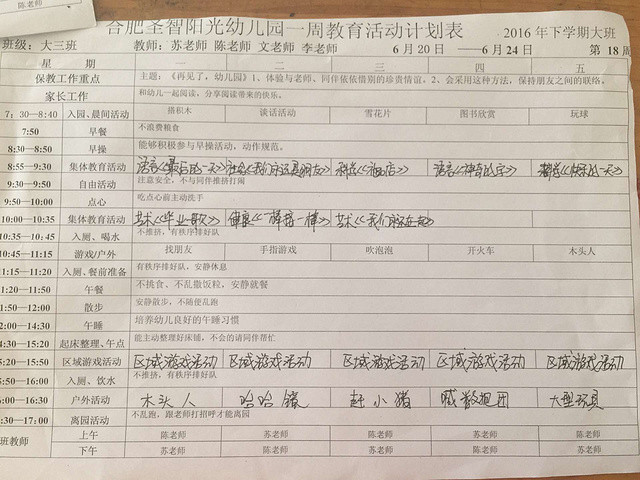 陈老师
合肥圣智阳光幼儿园一周教育活动计划表 2016年下学期大班
班级：大三班 教师：苏老师 陈老师 文老师 李老师 6月20日 ——6月24日 第18周
星 期 一 二 三 四 五
保教工作重点 主题：《再见了，幼儿园》1、体验与老师、同伴依依惜别的珍贵情谊。2、会采用这种方法，保持朋友之间的联络。
家长工作 和幼儿一起阅读，分享阅读带来的快乐。
7：30—8:40 入园、晨间活动 搭积木 谈话活动 雪花片 图书欣赏 玩球
7:50 早餐 不浪费粮食
8:30—8:50 早操 能够积极参与早操活动，动作规范。
8:55—9:30 集体教育活动 语言《最后的一天》 社会《我们永远是朋友》 语言《神奇的字》 《快乐的一天》
9:30—9:50 自由活动 注意安全，不与同伴推挤打闹
9:50—10:00 点心 吃点心前主动洗手
10:00—10:35 集体教育活动 艺术《毕业歌》 健康《一样搭一样》 艺术《我们永远在一起》
10:35—10:45 入厕、喝水 不推挤，有秩序排好队
10:45—11:15 游戏/户外 找朋友 手指游戏 吹泡泡 开火车 木头人
11:15—11:20 入厕、餐前准备 有秩序排好队，安静休息
11:20—11:50 午餐 不挑食、不乱撒饭粒，安静就餐
11:50—12:00 散步 安静散步，不随便乱跑
2:00—14:30 午睡 培养幼儿良好的午睡习惯
4:30—15:20 起床整理、午点 能主动整理好床铺，不会的请同伴帮忙
5:20—15:50 区域游戏活动 区域游戏活动 区域游戏活动 区域游戏活动 区域游戏活动 区域游戏活动
5:50—16:00 入厕、饮水 不推挤，有秩序排好队
6:00—16:30 户外活动 木头人 哈哈镜 赶小猪 喊数抱团 大型玩具
6:30—17:00 离园活动 不乱跑，跟老师打招呼才能离园
班教师 上午 陈老师 苏老师 陈老师 苏老师 陈老师
下午 苏老师 陈老师 苏老师 陈老师 苏老师